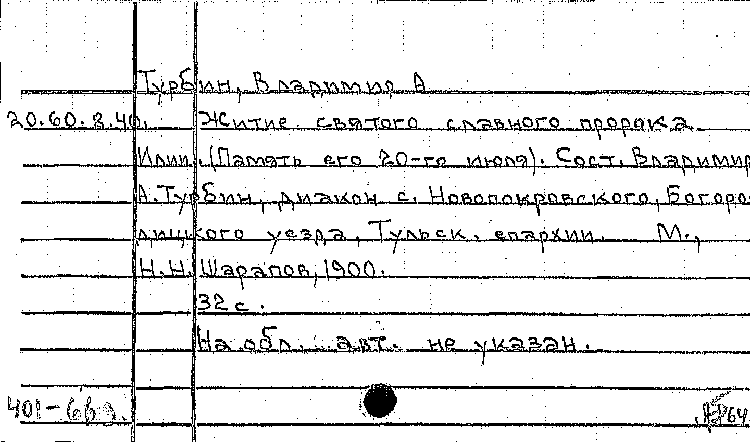 Турбин, Владимир А
20.60.2.40. Житие святого славного пророка
Илии. (Память его 20-го июля). Сост. Владимир
А. Турбин, диакон с. Новопокровского, Богоро-
дицкого уезда, Тульск. епархии. М.,
Н.Н. Шарапов, 1900.
32 с.
На обл. авт. не указан.
401-6вз
64